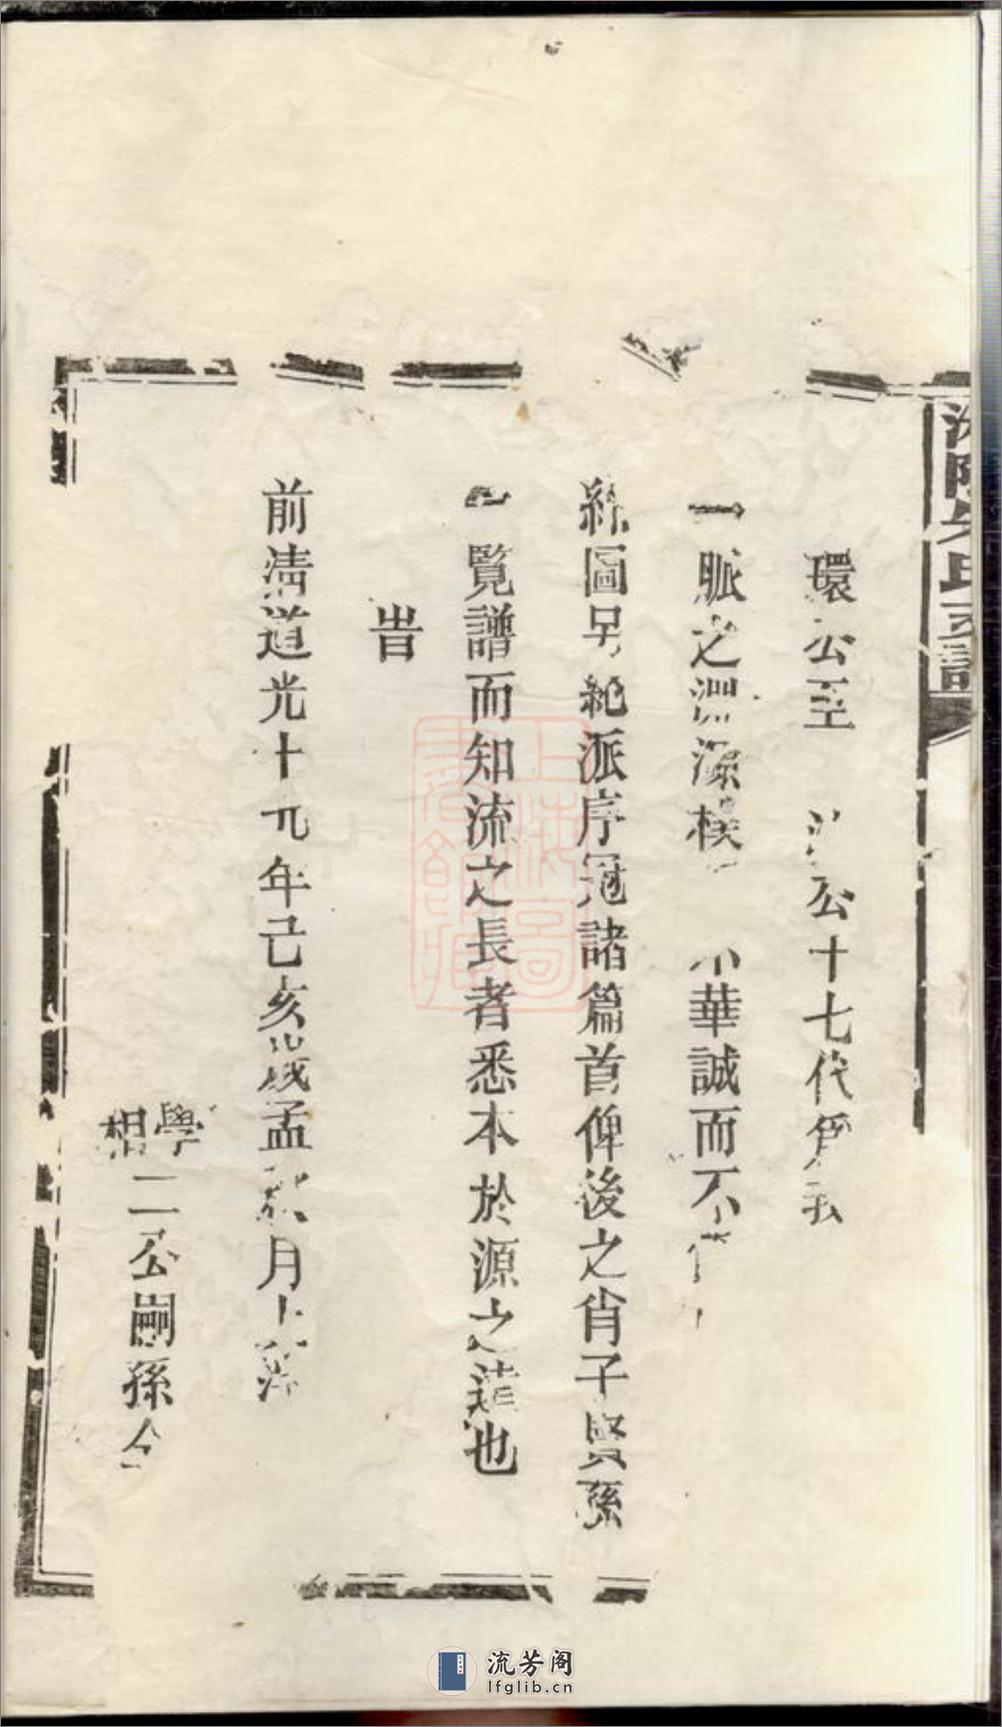 氏支譜
環公至 公十七代
一脈之淵源樸 不華誠而不
絲圖另紀派序冠諸篇首俾後之肖子賢孫
一覽譜而知流之長者悉本於源之遠也
旹
前清道光十九年己亥歲孟秋月上浣
學相二公嗣孫仝
上海圖書館藏
流芳阁
lfglib.cn